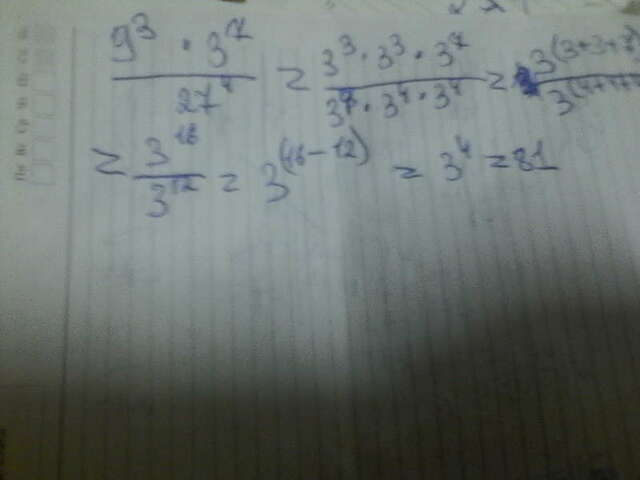 9³ · 3⁷ / 27⁴ = 3³ · 3³ · 3⁷ / 3⁴ · 3⁴ · 3⁴ = 3^(3+3+7) / 3^(4+4+4
= 3^16 / 3^12 = 3^(16-12) = 3⁴ = 81